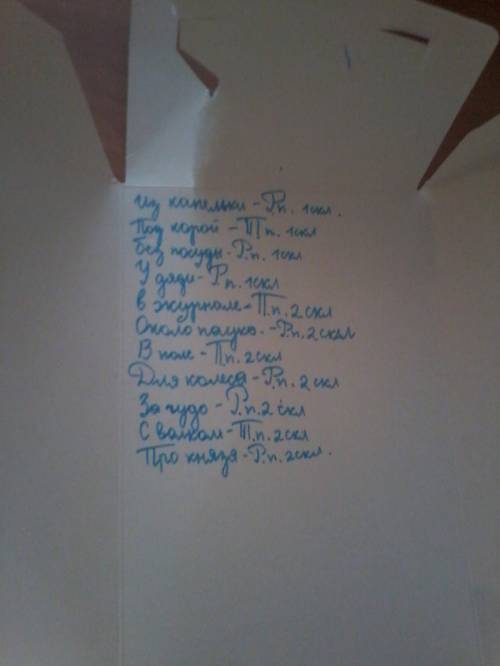 Из капельки - Р.п. 1скл.
Под корой - Т.п. 1скл
Без посуды - Р.п. 1скл
У дяди - Р.п. 1скл
в журнале - П.п. 2 скл
Около паука - Р.п. 2 скл
В поле - П.п. 2скл
Для колеса - Р.п. 2 скл
За чудо - Р.п. 2 скл
С волком - Т.п. 2скл
Про князя - Р.п. 2скл.